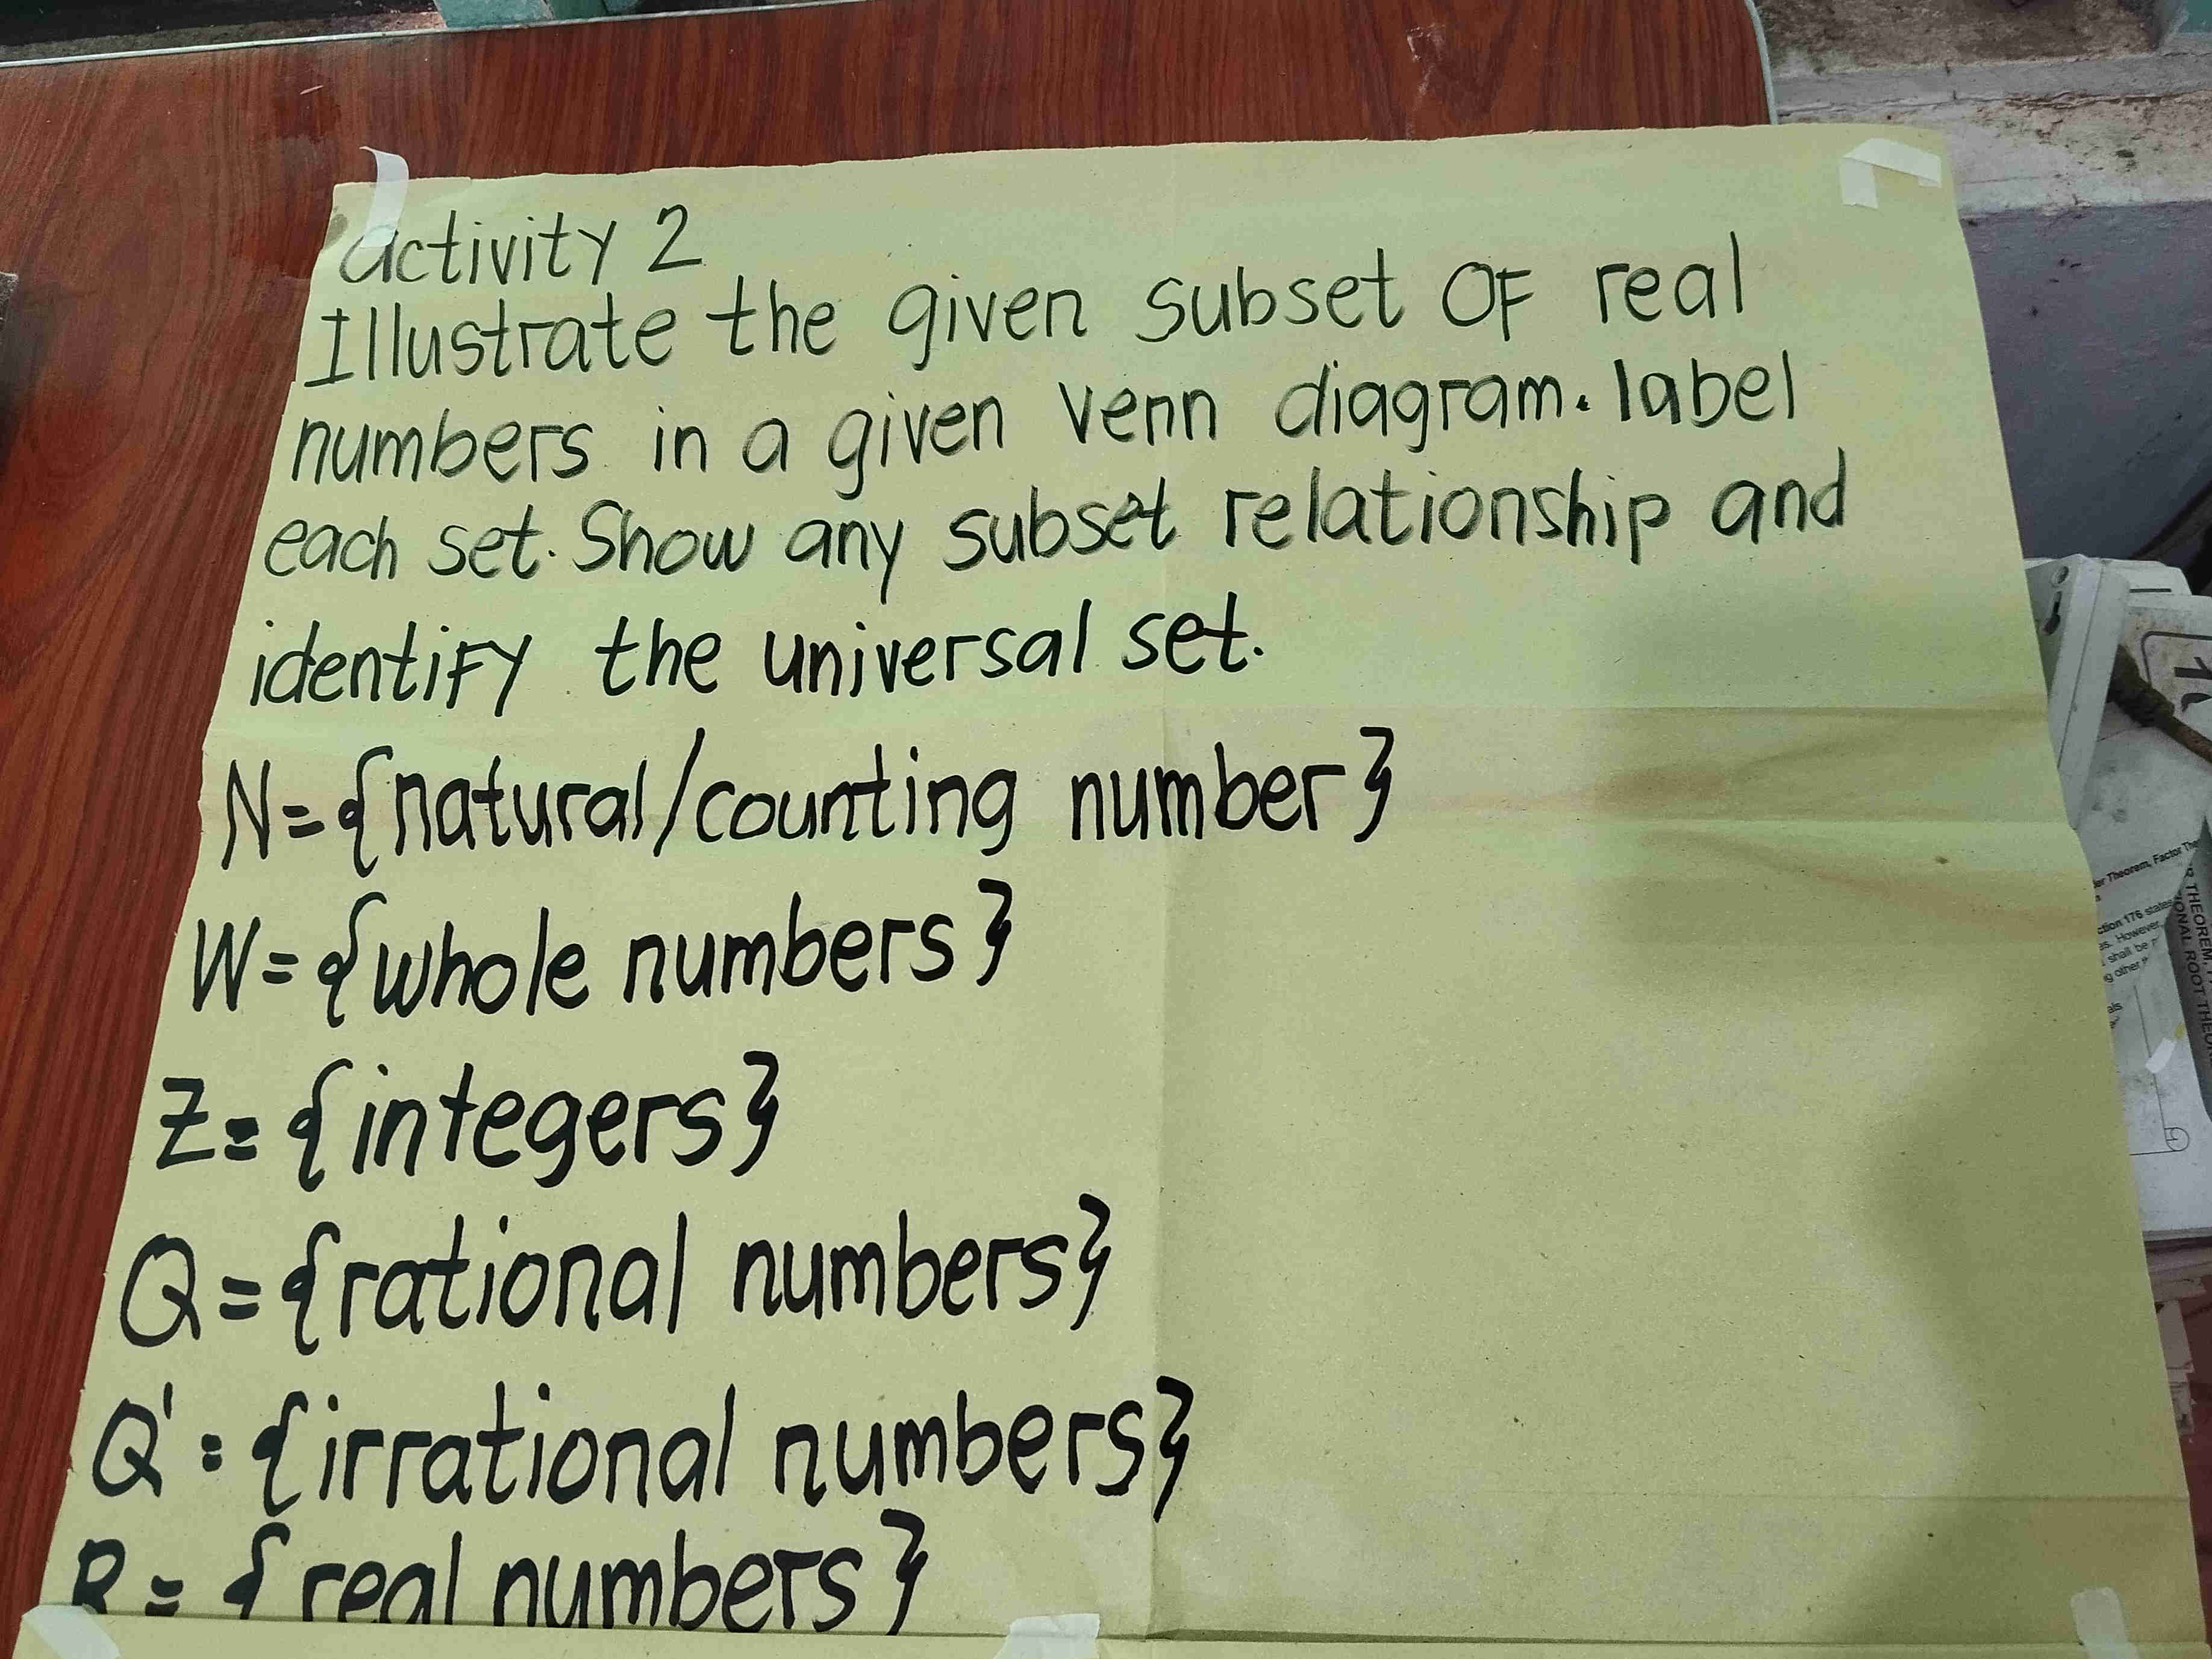 activity 2
Illustrate the given subset OF real
numbers in a given venn diagram. label
each set. Show any subset relationship and
identify the universal set.
N={natural/counting number}
W={whole numbers}
Z={integers}
Q={rational numbers}
Q'={irrational numbers}
R={real numbers}
Theorem, Factor
ction 176 states
However
shall be
THEOREM,
ONAL ROOT